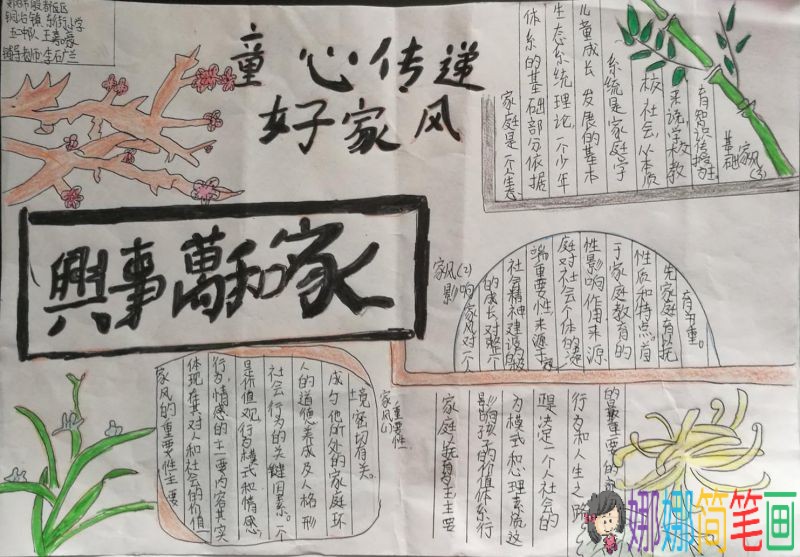 铜冶镇东街小学
辅导老师:李石广兰
童心传递
好家风
家和萬事興
家风(3)
基础
家庭是一个生态
体系的基础部分依据
生态系统理论,一个少年
儿童成长 发展的基本
系统是家庭、学
校、社会从本质
来说,学校教
有知识传授为主。
家风(2)
影响家风对一个
的成长对整个
社会精神建设的极
端重要性来源于家
庭对社会个体的浸
性影响作用来源
于家庭教育的
性质和特点。首
先家庭有以抚
有为重。
家风(1)
重要性
家风的重要性主要
体现在其对人和社会的价值
行为情感的主要内容其实
是价值观行为模式和情感
社会行为的关键因素。一个
人的道德养成及人格形
成与他所处的家庭环
境密切有关。
家庭以抚育为主主要
影响孩子的价值体系行
为模式和心理素质这
是决定一个人社会的
行为和人生之路
的最重要的前
娜娜简笔画